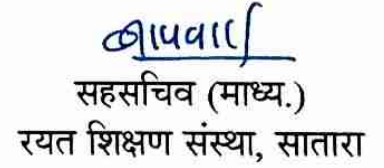 सहसचिव (माध्य.)
रयत शिक्षण संस्था, सातारा